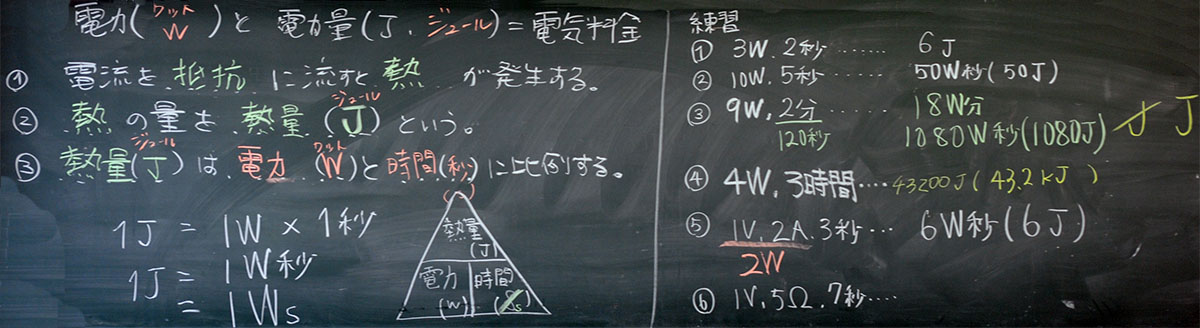 電力(ワット W)と 電力量(J、ジュール)=電気料金
① 電流を抵抗に流すと熱が発生する。
② 熱の量を熱量(ジュール J)という。
③ 熱量(ジュール J)は電力(ワット W)と時間(秒)に比例する。
1J = 1W × 1秒
1J = 1W秒
= 1Ws
熱量
(J)
電力 時間
(W) (s)
練習
① 3W、2秒 …… 6J
② 10W、5秒 …… 50W秒(50J)
③ 9W、2分 …… 18W分
120秒 1080W秒(1080J) J J
④ 4W、3時間 … 43200J(43.2kJ)
⑤ 1V、2A、3秒 … 6W秒(6J)
2W
⑥ 1V、5Ω、7秒 ‥‥